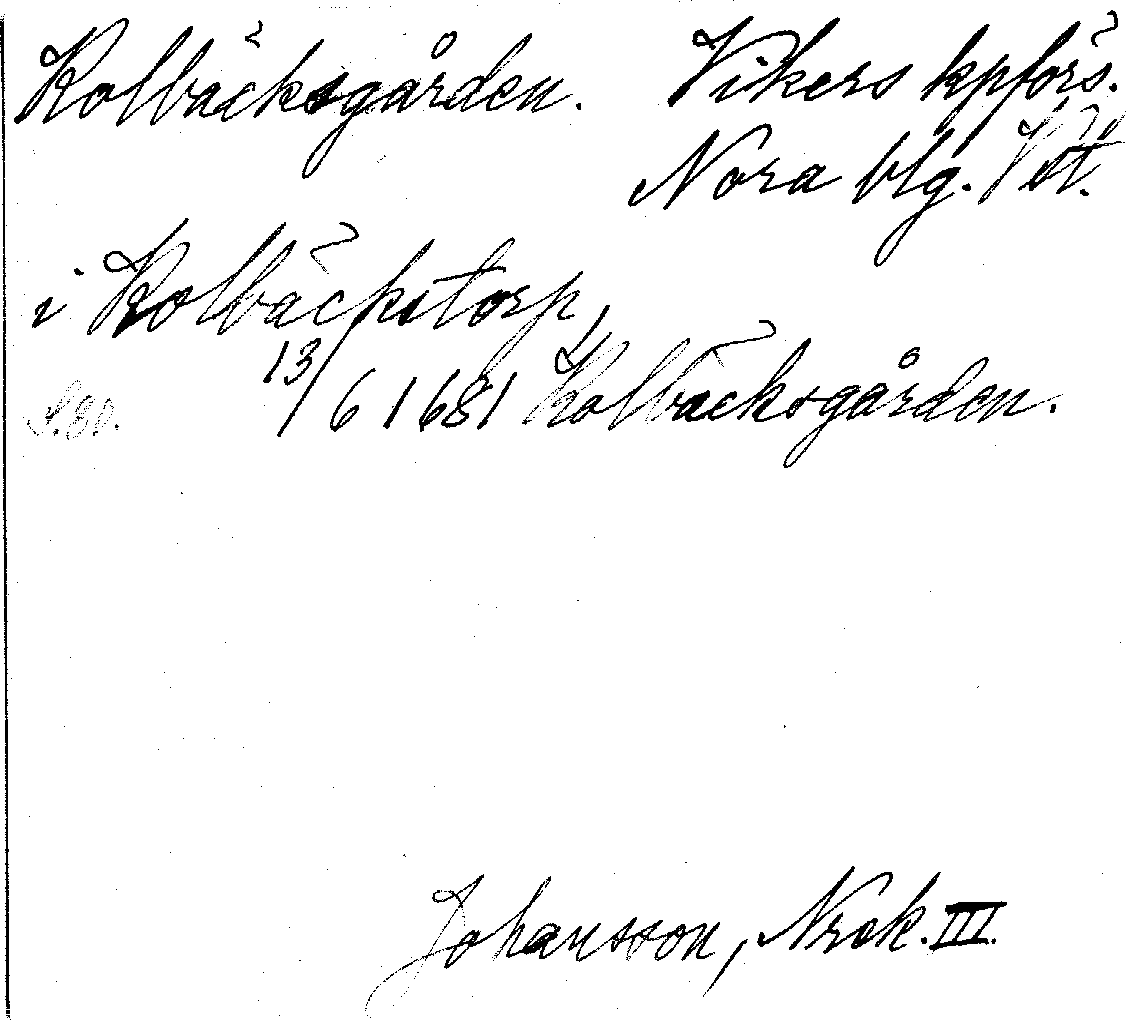 Kolbäcksgården. Vikers kpförs.
Nora blg. Vstm.
i Kolbäckstorp,
S. 80. 13/6 1681 Kolbäcksgården.
Johansson, Nrck. III.